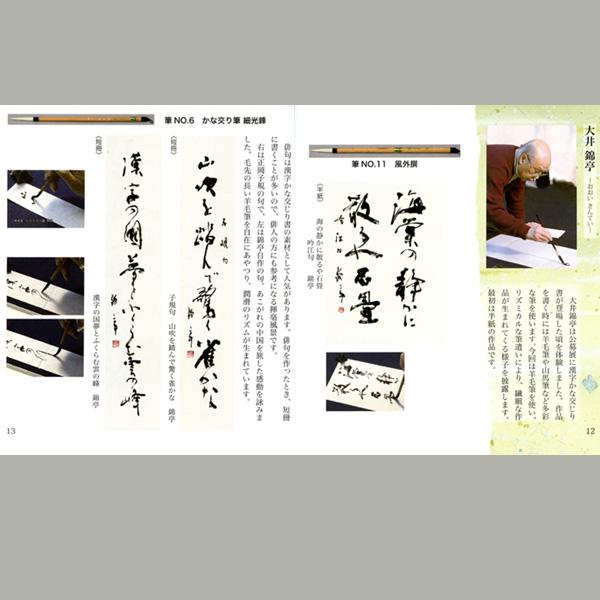 大井 錦亭
―おおい きんてい―
大井錦亭は公募展に漢字かな交じり
書が登場した頃を体験しました。作品
を書く時には羊毛筆や山馬筆など多彩
な筆を使います。今回は羊毛筆を使い、
リズミカルな筆遣いにより、繊細な作
品が生まれてくる様子を披露します。
最初は半紙の作品です。
12
筆NO.11 風外撰
〈半紙〉
海棠の静かに
散るや石畳
海の静かに散るや石畳
吟江句 錦亭
俳句は漢字かな交じり書の素材として人気があります。俳句を作ったとき、短冊
に書くことが多いので、俳人の方にも参考になる揮毫風景です。
右は正岡子規の句で、左は錦亭自作の句。あこがれの中国を旅した感動を詠みま
した。毛先の長い羊毛筆を自在にあやつり、潤滑のリズムが生まれています。
筆NO.6 かな交り筆 細光鋒
〈短冊〉
山吹を踏んで驚く雀かな
子規句
子規句 山吹を踏んで驚く雀かな 錦亭
〈短冊〉
漢字の國夢とふくらむ雲の峰
漢字の国夢とふくらむ雲の峰 錦亭
13